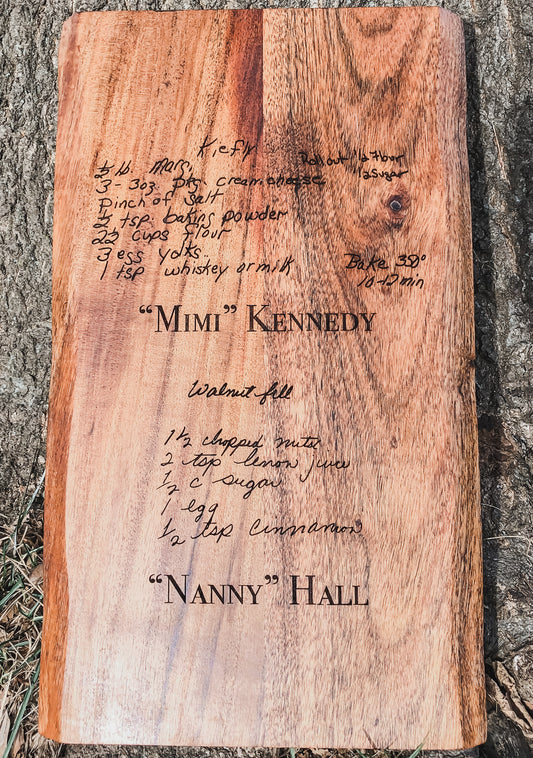 Kiefli
½ lb. marg.
3 - 3oz. pkg. cream cheese
Pinch of salt
½ tsp. baking powder
2½ cups flour
3 egg yolks.
1 tsp whiskey or milk
Roll out ½ Flour
½ Sugar
Bake 350°
10-12 min
“MIMI” KENNEDY
Walnut fill
1 ½ chopped nuts
2 tsp lemon juice
½ c sugar
1 egg
½ tsp cinnamon
“NANNY” HALL